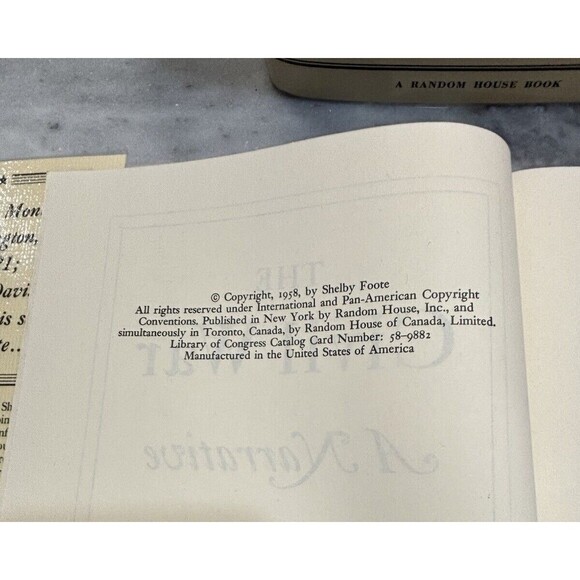 A RANDOM HOUSE BOOK
Mon
gton,
1;
Davi
is s
te..
© Copyright, 1958, by Shelby Foote
All rights reserved under International and Pan-American Copyright
Conventions. Published in New York by Random House, Inc., and
simultaneously in Toronto, Canada, by Random House of Canada, Limited.
Library of Congress Catalog Card Number: 58-9882
Manufactured in the United States of America
THE
CIVIL WAR
A Narrative